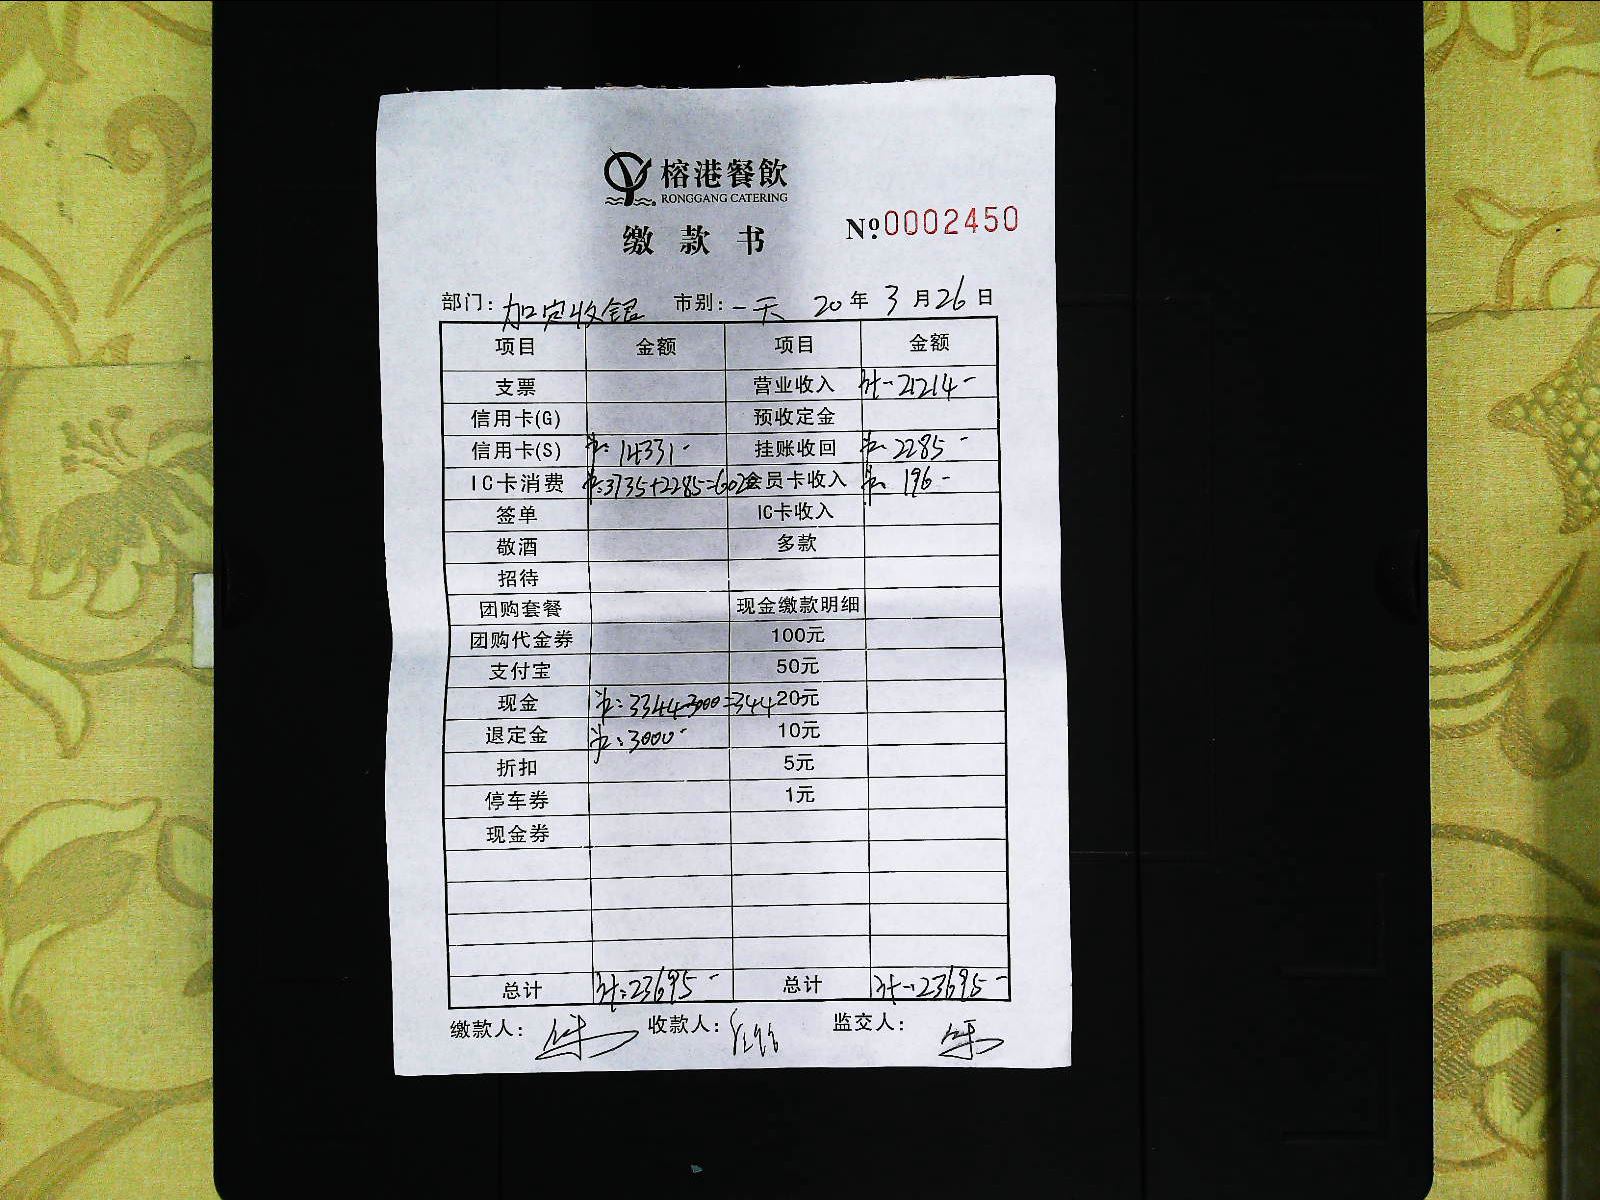 榕港餐飲
RONGGANG CATERING
缴款书
No 0002450
部门: 加定收银 市别: 一天 20年3月26日
项目 金额 项目 金额
支票 营业收入 21214-
信用卡(G) 预收定金
信用卡(S) 14331- 挂账收回 2285-
IC卡消费 3735+2285=602 会员卡收入 196-
签单 IC卡收入
敬酒 多款
招待
团购套餐 现金缴款明细
团购代金券 100元
支付宝 50元
现金 3344-3000=344 20元
退定金 3000- 10元
折扣 5元
停车券 1元
现金券
总计 23695- 总计 23695-
缴款人: 收款人: 监交人: